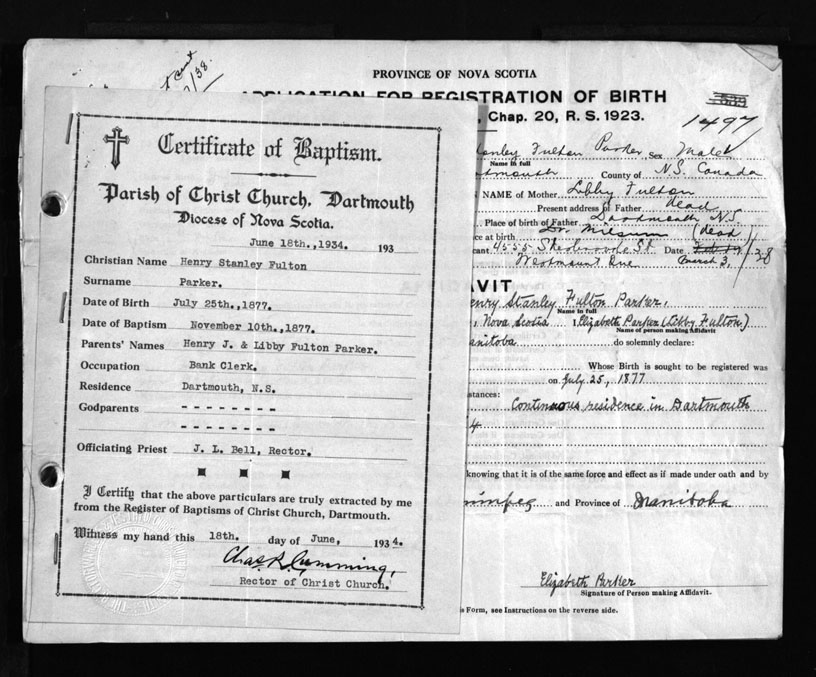 Certificate of Baptism.
Parish of Christ Church, Dartmouth
Diocese of Nova Scotia.
June 18th.,1934. 193
Christian Name Henry Stanley Fulton
Surname Parker.
Date of Birth July 25th.,1877.
Date of Baptism November 10th.,1877.
Parents' Names Henry J. & Libby Fulton Parker.
Occupation Bank Clerk.
Residence Dartmouth, N.S.
Godparents - - - - - - - -
- - - - - - - -
Officiating Priest J. L. Bell, Rector.
I Certify that the above particulars are truly extracted by me
from the Register of Baptisms of Christ Church, Dartmouth.
Witness my hand this 18th. day of June, 1934.
Chas. R. Cumming,
Rector of Christ Church.
PROVINCE OF NOVA SCOTIA
APPLICATION FOR REGISTRATION OF BIRTH
, Chap. 20, R. S. 1923.
1497
Stanley Fulton Parker Sex Male
Name in full
County of N.S. Canada
NAME of Mother Libby Fulton
Present address of Father dead
Place of birth of Father Dartmouth N.S
ce at birth Dr. (dead)
cant 4555 Sherbrooke St. Date
Westmount Que March 3, /38
VIT
enry Stanley Fulton Parker,
Name in full
, Nova Scotia I, Elizabeth Parker (Libby Fulton)
Name of person making affidavit
anitoba do solemnly declare:
Whose Birth is sought to be registered was
on July 25, 1877
stances:
Continuous residence in Dartmouth
4
knowing that it is of the same force and effect as if made under oath and by
innipeg and Province of Manitoba
Elizabeth Parker
Signature of Person making Affidavit.
s Form, see Instructions on the reverse side.